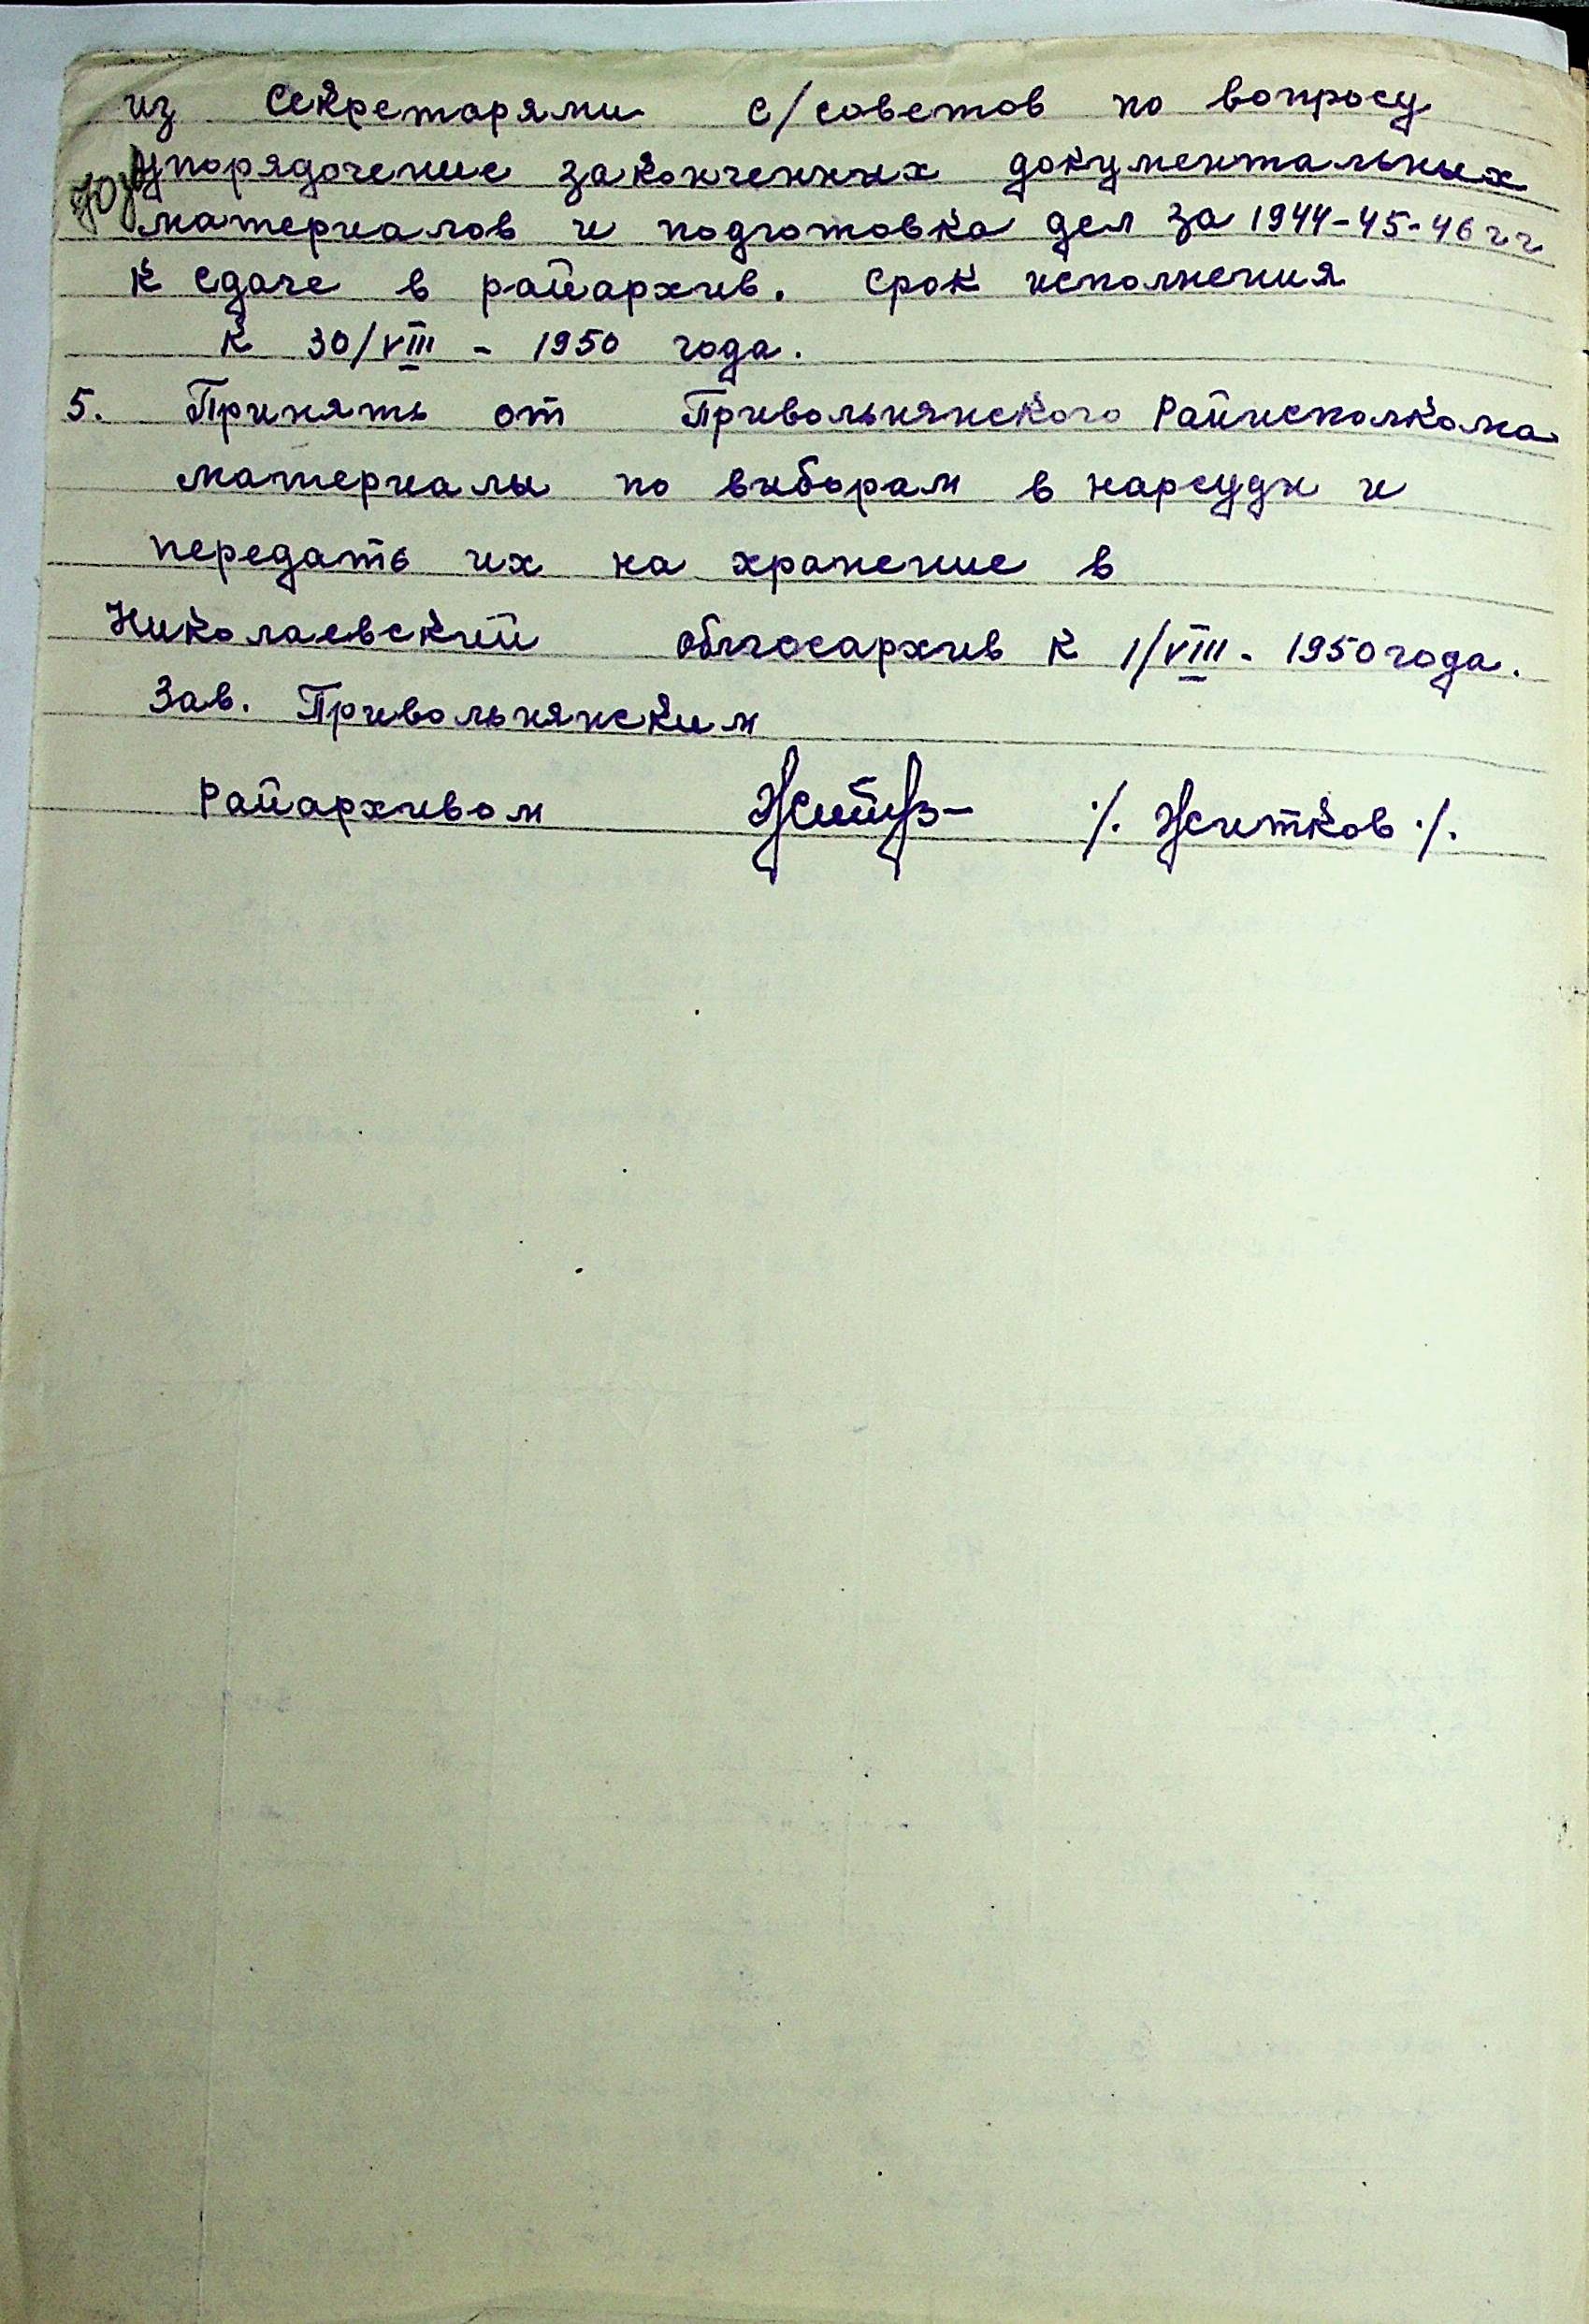 из секретарями с/советов по вопросу
упорядочение законченных документальных
материалов и подготовка дел за 1944-45-46 гг
к сдаче в райархив. Срок исполнения
к 30/VIII - 1950 года.
5. Принять от Привольнянского Райисполкома
материалы по выборам в нарсуды и
передать их на хранение в
Николаевский облгосархив к 1/VIII - 1950 года.
Зав. Привольнянским
Райархивом /. Житков ./.